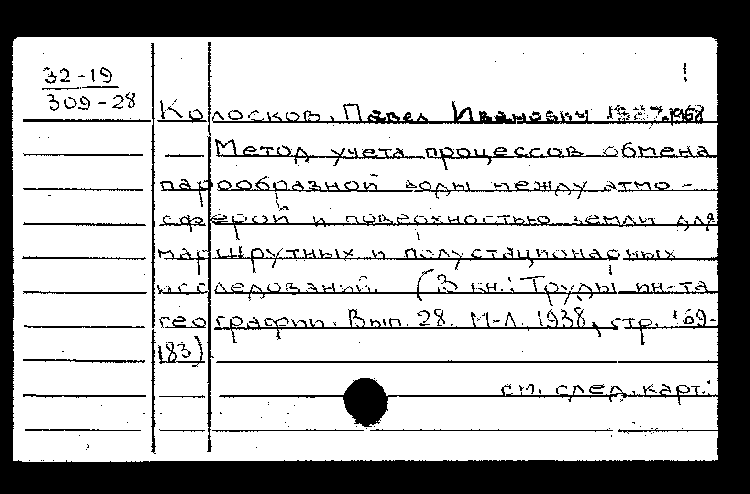 32-19
309-28
Колосков, Павел Иванович 1968
Метод учета процессов обмена
парообразной воды между атмо-
сферой и поверхностью земли для
маршрутных и полустационарных
исследований. (В кн.: Труды ин-та
географии. Вып. 28. М-Л, 1938, стр. 169-
183).
см. след. карт.: